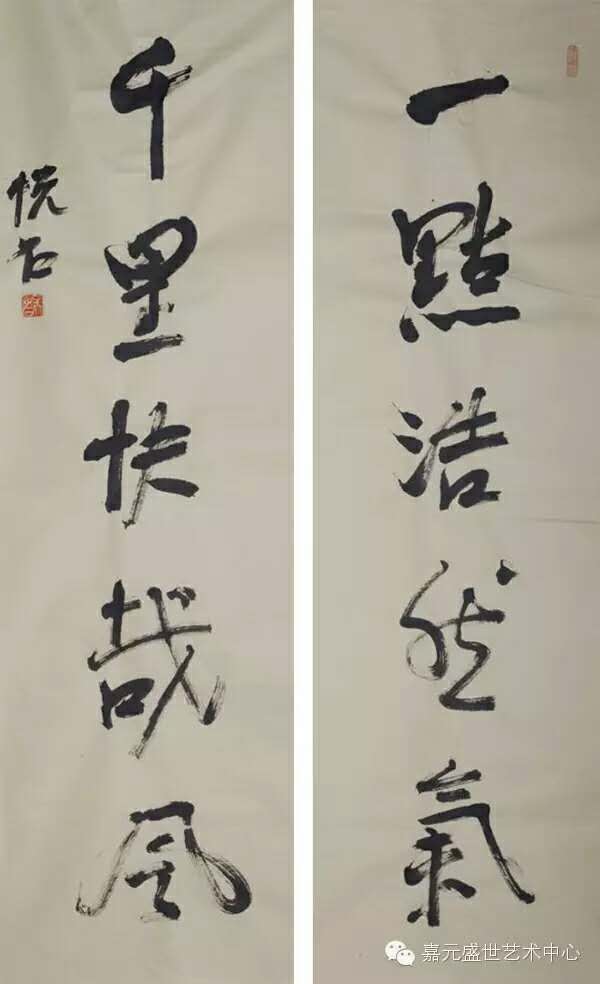 一點浩然氣
千里快哉風
嘉元盛世艺术中心